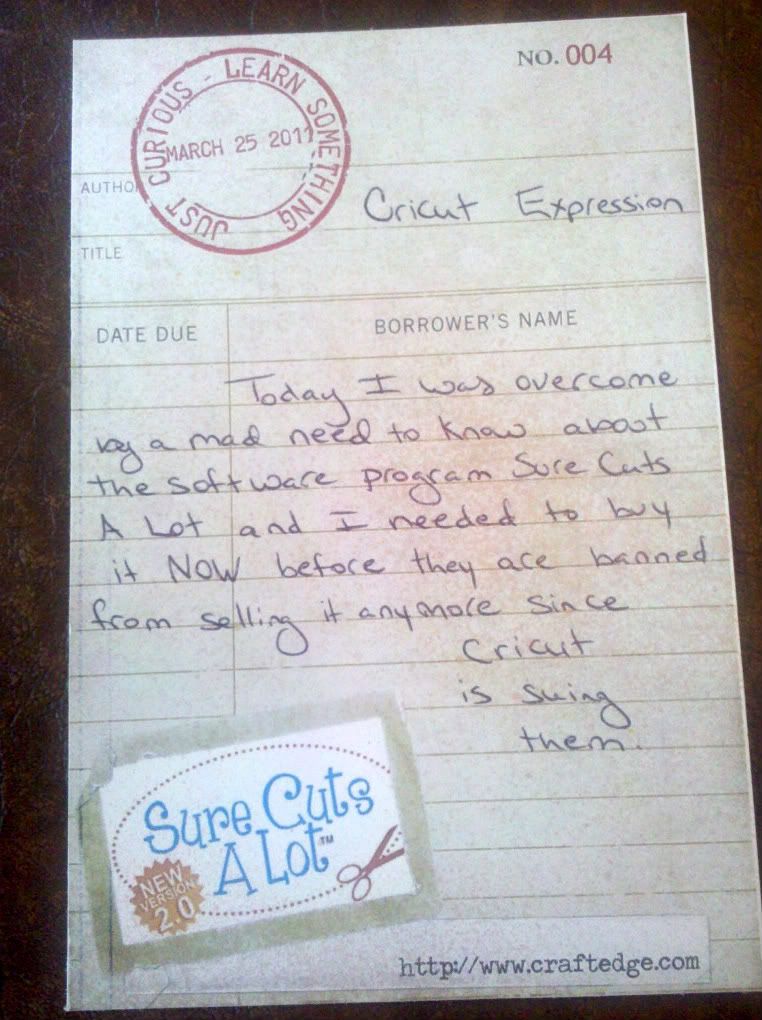 NO. 004
JUST CURIOUS - LEARN SOMETHING
MARCH 25 2011
AUTHO
Cricut Expression
TITLE
DATE DUE
BORROWER'S NAME
Today I was overcome
by a mad need to know about
the software program Sure Cuts
A Lot and I needed to buy
it NOW before they are banned
from selling it anymore since
Cricut
is suing
them.
Sure Cuts
A Lot™
NEW
VERSION
2.0
http://www.craftedge.com